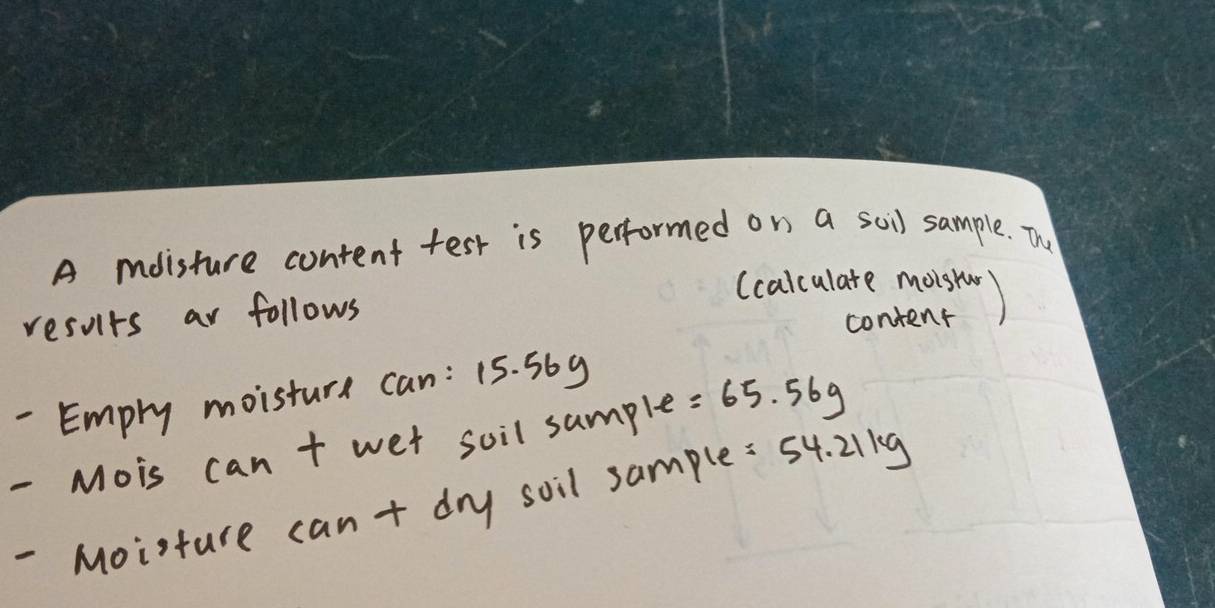 A moisture content test is performed on a soil sample. The
results ar follows
(calculate moistur
content)
- Empty moisture can: 15.56g
- Mois can + wet soil sample = 65.56g
- Moisture can + dry soil sample = 54.21kg